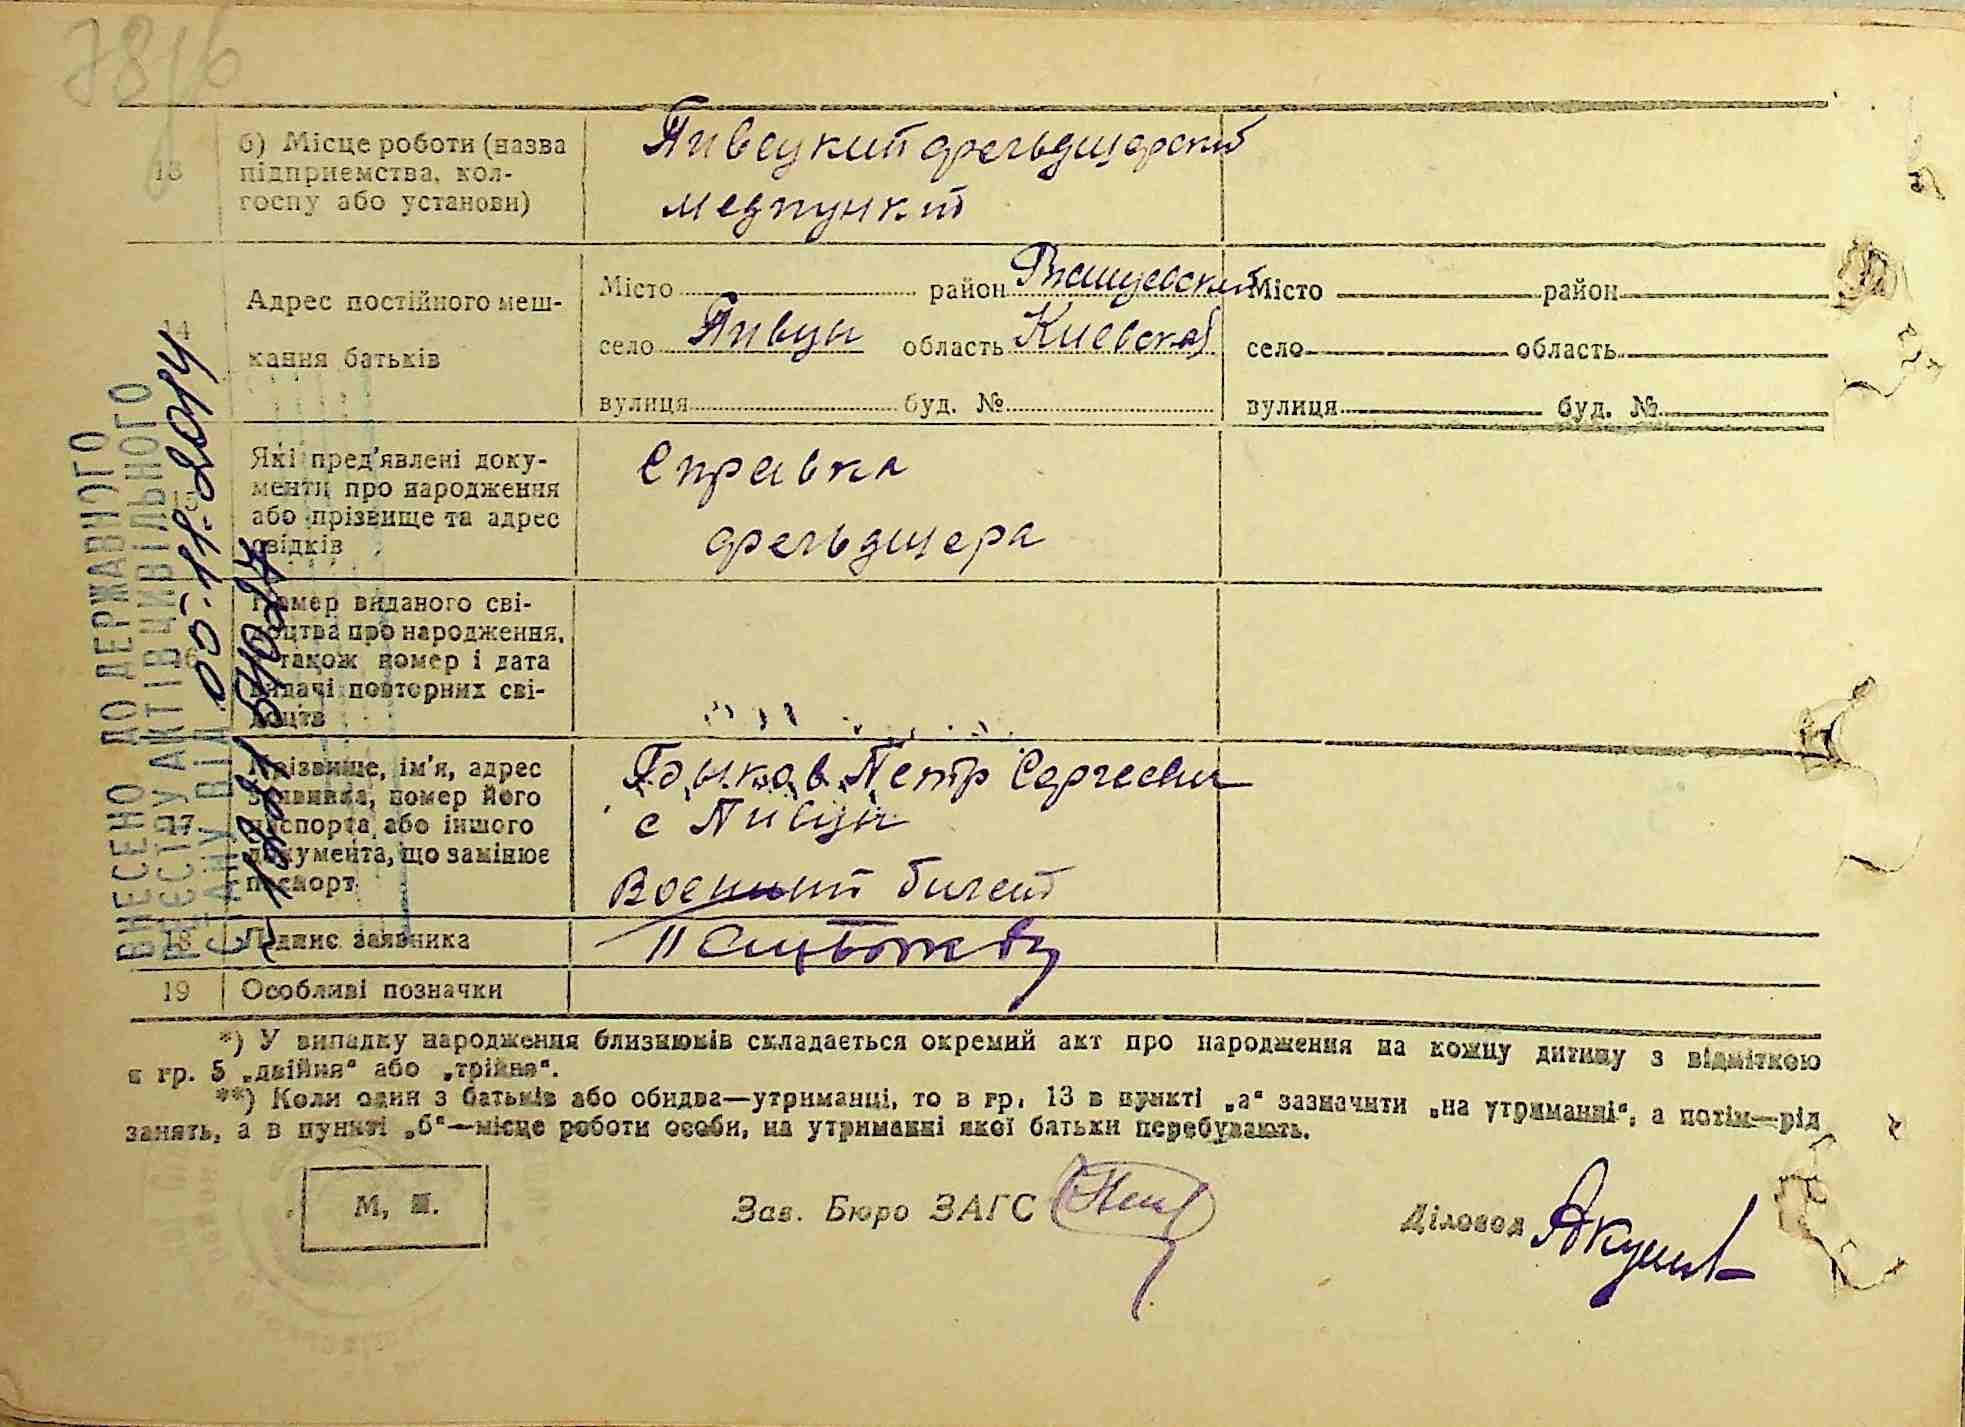 78
13
б) Місце роботи (назва
підприємства, кол-
госпу або установи)
Пивецкий фельдшерский
медпункт
14
Адрес постійного меш-
кання батьків
Місто район Ржищевский
село Пивцы область Киевская
вулиця буд. №
Місто район
село область
вулиця буд. №
15
Які пред'явлені доку-
менти про народження
або прізвище та адрес
свідків
Справка
фельдшера
16
Номер виданого сві-
доцтва про народження,
а також номер і дата
видачі повторних сві-
доцтв
17
Прізвище, ім'я, адрес
заявника, номер його
паспорта або іншого
документа, що замінює
паспорт
Петр Сергеевич
с Пивцы
Военный билет
18
Підпис заявника
19
Особливі позначки
ВНЕСЕНО ДО ДЕРЖАВНОГО
РЕЄСТРУ АКТІВ ЦИВІЛЬНОГО
СТАНУ ВІД 11-2014
*) У випадку народження близнюків складається окремий акт про народження на кожну дитину з відміткою
в гр. 5 „двійня“ або „трійня“.
**) Коли один з батьків або обидва—утриманці, то в гр. 13 в пункті „а“ зазначити „на утриманні“, а потім—рід
занять, а в пункті „б“—місце роботи особи, на утриманні якої батьки перебувають.
М. П.
Зав. Бюро ЗАГС
Діловод